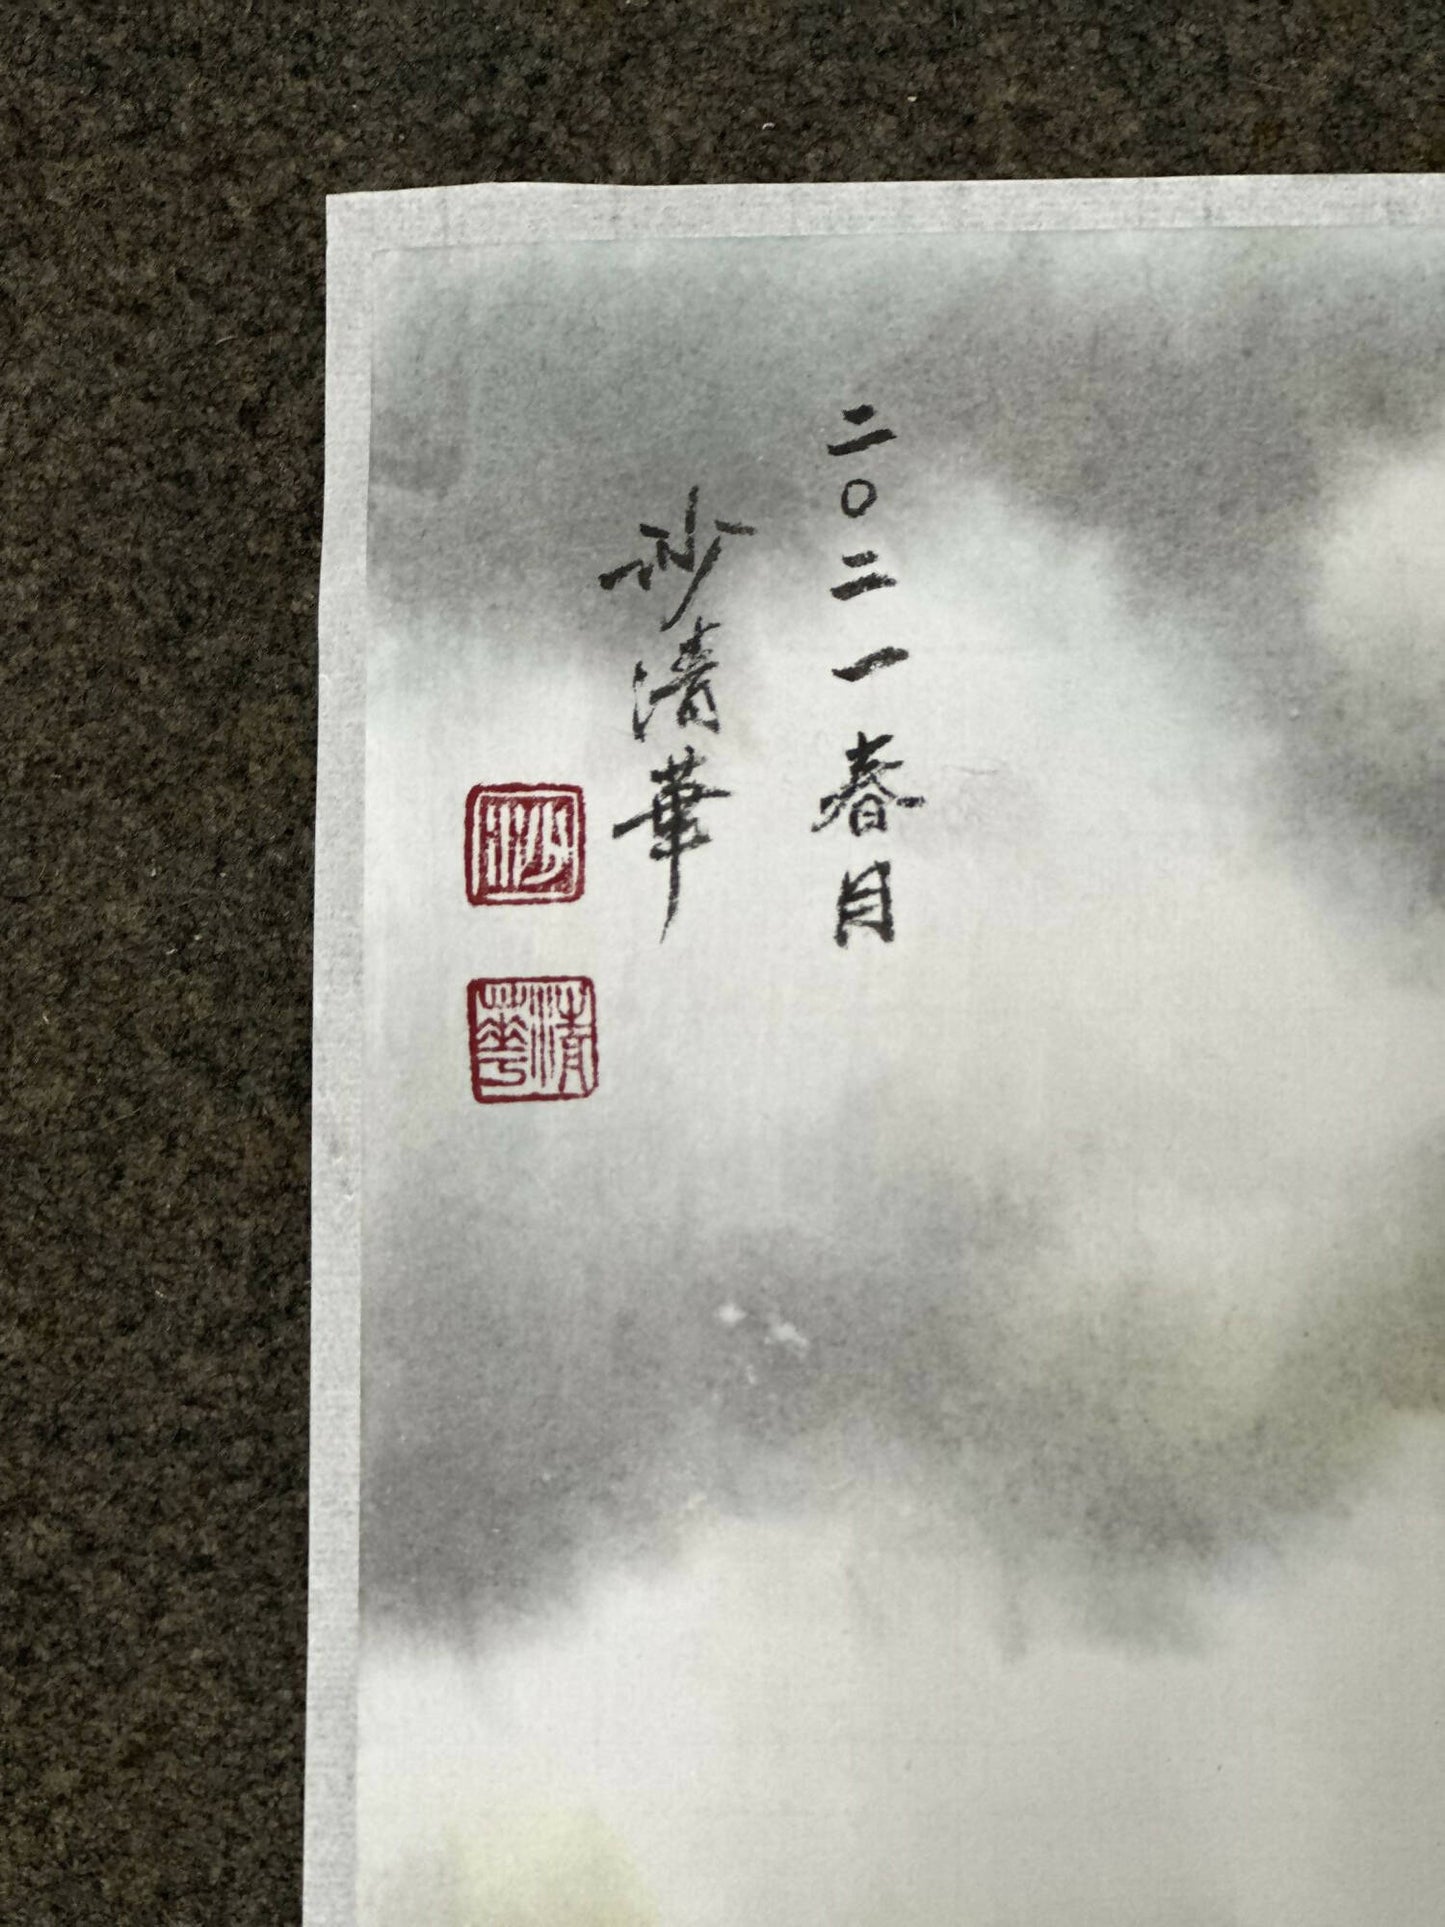 二〇二一春月
沙清華
沙
清華